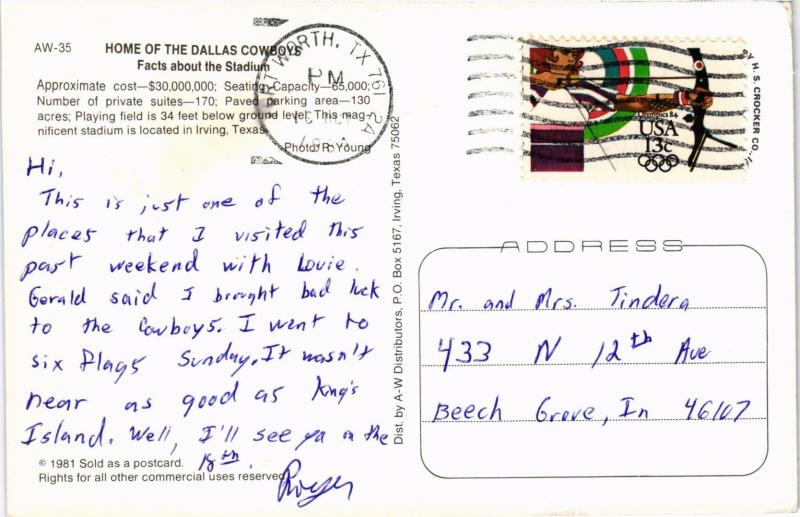 AW-35 HOME OF THE DALLAS COWBOYS
Facts about the Stadium
Approximate cost—$30,000,000; Seating Capacity—65,000;
Number of private suites—170; Paved parking area—130
acres; Playing field is 34 feet below ground level; This mag-
nificent stadium is located in Irving, Texas.
Photo: R. Young
Hi,
This is just one of the
places that I visited this
past weekend with Louie.
Gerald said I brought bad luck
to the Cowboys. I went to
six flags Sunday. It wasn't
near as good as King's
Island. Well, I'll see ya on the
18th.
Roger
© 1981 Sold as a postcard.
Rights for all other commercial uses reserved
Dist. by A-W Distributors, P.O. Box 5167, Irving, Texas 75062
WORTH, TX 76
PM
Olympics 84
USA
13c
H. S. CROCKER CO.,
ADDRESS
Mr. and Mrs. Tindera
433 N 12th Ave
Beech Grove, In 46107